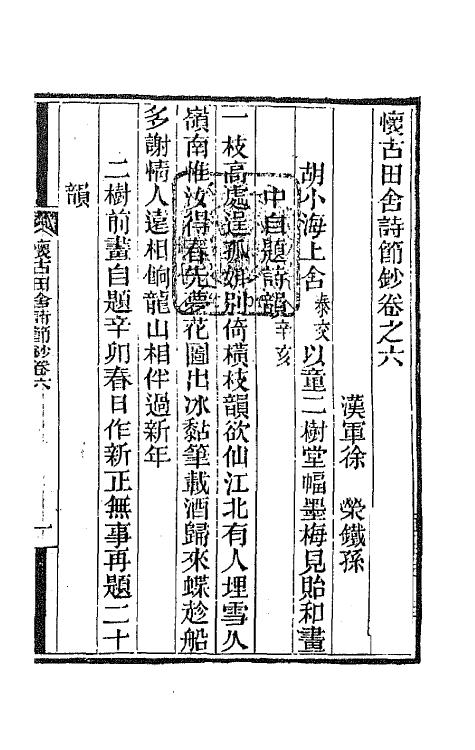 懷古田舍詩節鈔卷之六
漢軍徐 榮鐵孫
胡小海上舍泰交以童二樹堂幅墨梅見貽和畫
中自題詩韻辛亥
一枝高處逞孤妍別倚橫枝韻欲仙江北有人埋雪久
嶺南惟汝得春先夢花圖出冰黏筆載酒歸來蝶趁船
多謝情人遠相餉龍山相伴過新年
二樹前畫自題辛卯春日作新正無事再題二十
韻
懷古田舍詩節鈔卷六
一